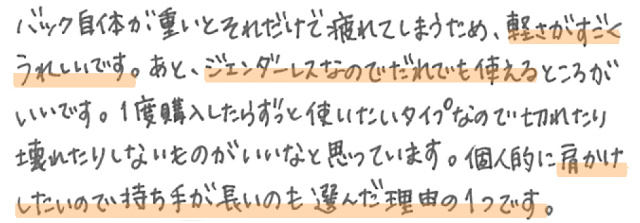 バック自体が重いとそれだけで疲れてしまうため、軽さがすごく
うれしいです。あと、ジェンダーレスなのでだれでも使えるところが
いいです。1度購入したらずっと使いたいタイプなので切れたり
壊れたりしないものがいいなと思っています。個人的に肩かけ
したいので持ち手が長いのも選んだ理由の1つです。